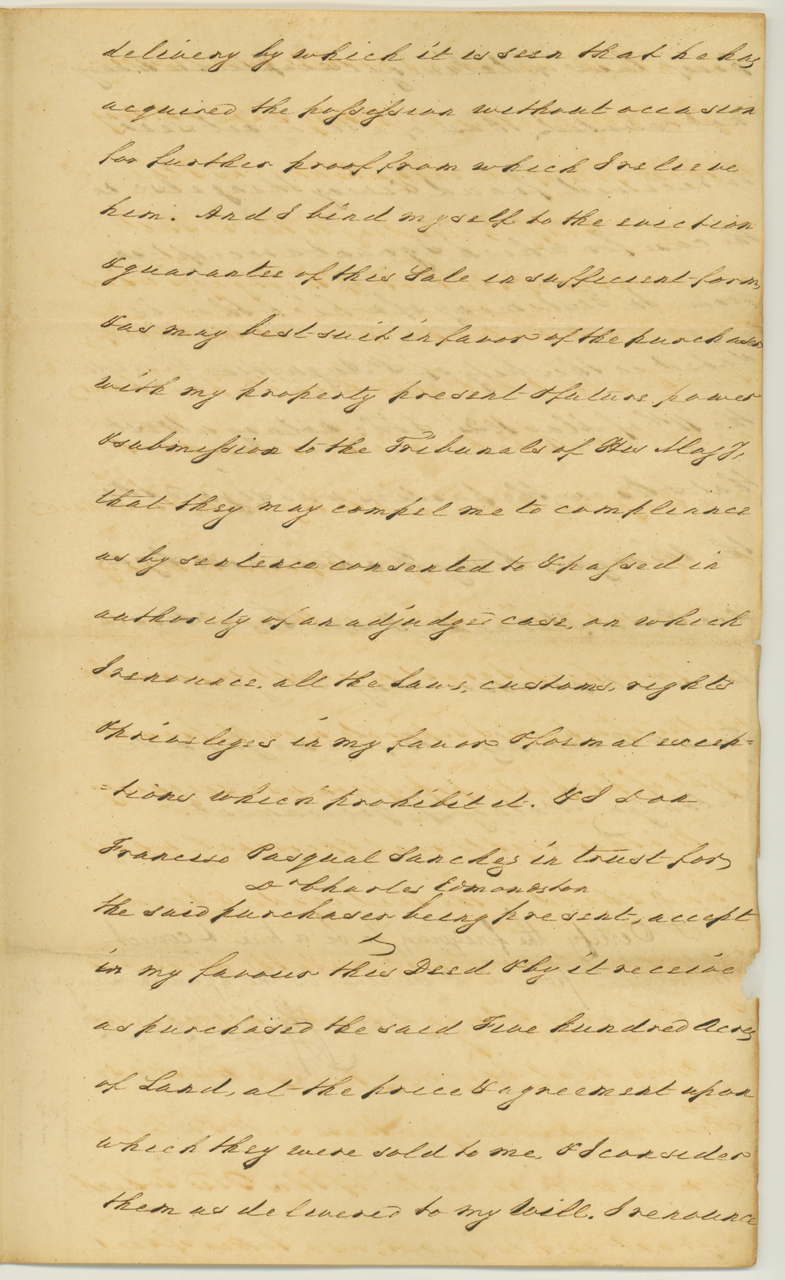 delivery by which it is seen that he has
acquired the possession without occasion
for further proof from which I relieve
him. And I bind myself to the eviction
& guarantee of this Sale in sufficient form,
& as may best suit in favor of the purchaser
with my property present & future, power
& submission to the Tribunals of His Majy,
that they may compel me to compliance
as by sentence consented to & passed in
authority of an adjudged case, on which
I renounce, all the Laws, customs, rights
& privileges in my favor & formal excep=
=tions which prohibit it. & I Don
Francisco Pasqual Sanchez in trust for
Dn Charles Edmondston
the said purchaser being present, accept
in my favour this Deed & by it receive
as purchased the said Five hundred Acres
of Land, at the price & agreement upon
which they were sold to me, & I consider
them as delivered to my Will. I renounce